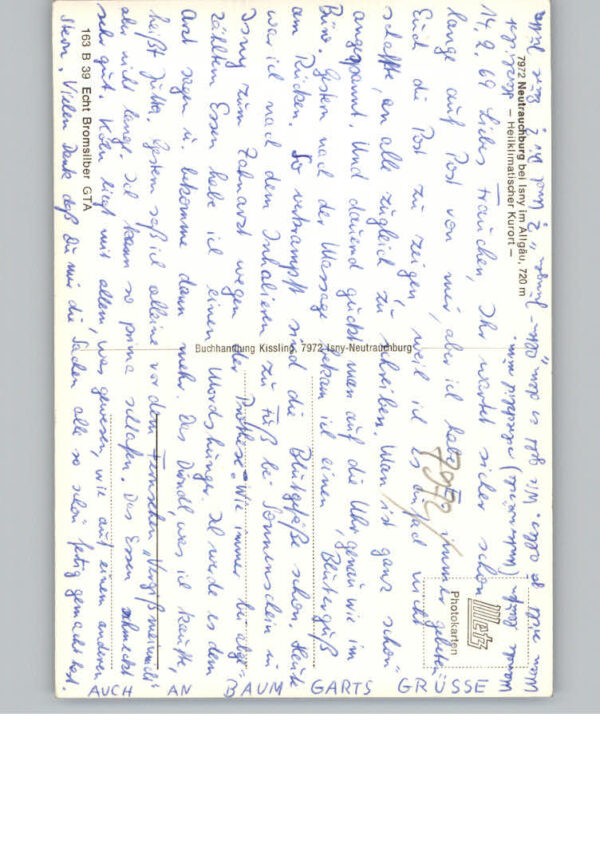 7972 Neutrauchburg bei Isny im Allgäu, 720 m
– Heilklimatischer Kurort –
14.2.69 Liebes Frauchen, Ihr wartet sicher schon
lange auf Post von mir, aber ich habe immer gebeten,
Euch die Post zu zeigen, weil ich es einfach nicht
schaffte, an alle zugleich zu schreiben. Man ist ganz schön
angespannt. Und dauernd guckt man auf die Uhr, genau wie im
Büro. Gestern nach der Massage bekam ich einen Bluterguß
am Rücken. So verkrampft sind die Blutgefäße schon. Heute
war ich nach dem Inhalieren zu Fuß bei Sonnenschein in
Isny zum Zahnarzt wegen der Prothese. Wie immer bei abge-
zähltem Essen habe ich einen Mordshunger. Ich werde es dem
Arzt sagen u. bekomme dann mehr. Das Dirndl, was ich kaufte,
heißt Jutta. Gestern saß ich alleine vor dem Fernseher „Vergißmeinnicht"
aber nicht lange. Ich kann so prima schlafen. Das Essen schmeckt
sehr gut. Köln liegt mit allem, was gewesen, wie auf einem anderen
Stern. Vielen Dank daß Du mir die Sachen alle so schön fertig gemacht hast.
AUCH AN BAUMGARTS GRÜSSE
7972
Metz
Photokarten
Buchhandlung Kissling, 7972 Isny-Neutrauchburg
163 B 39 Echt Bromsilber GTA